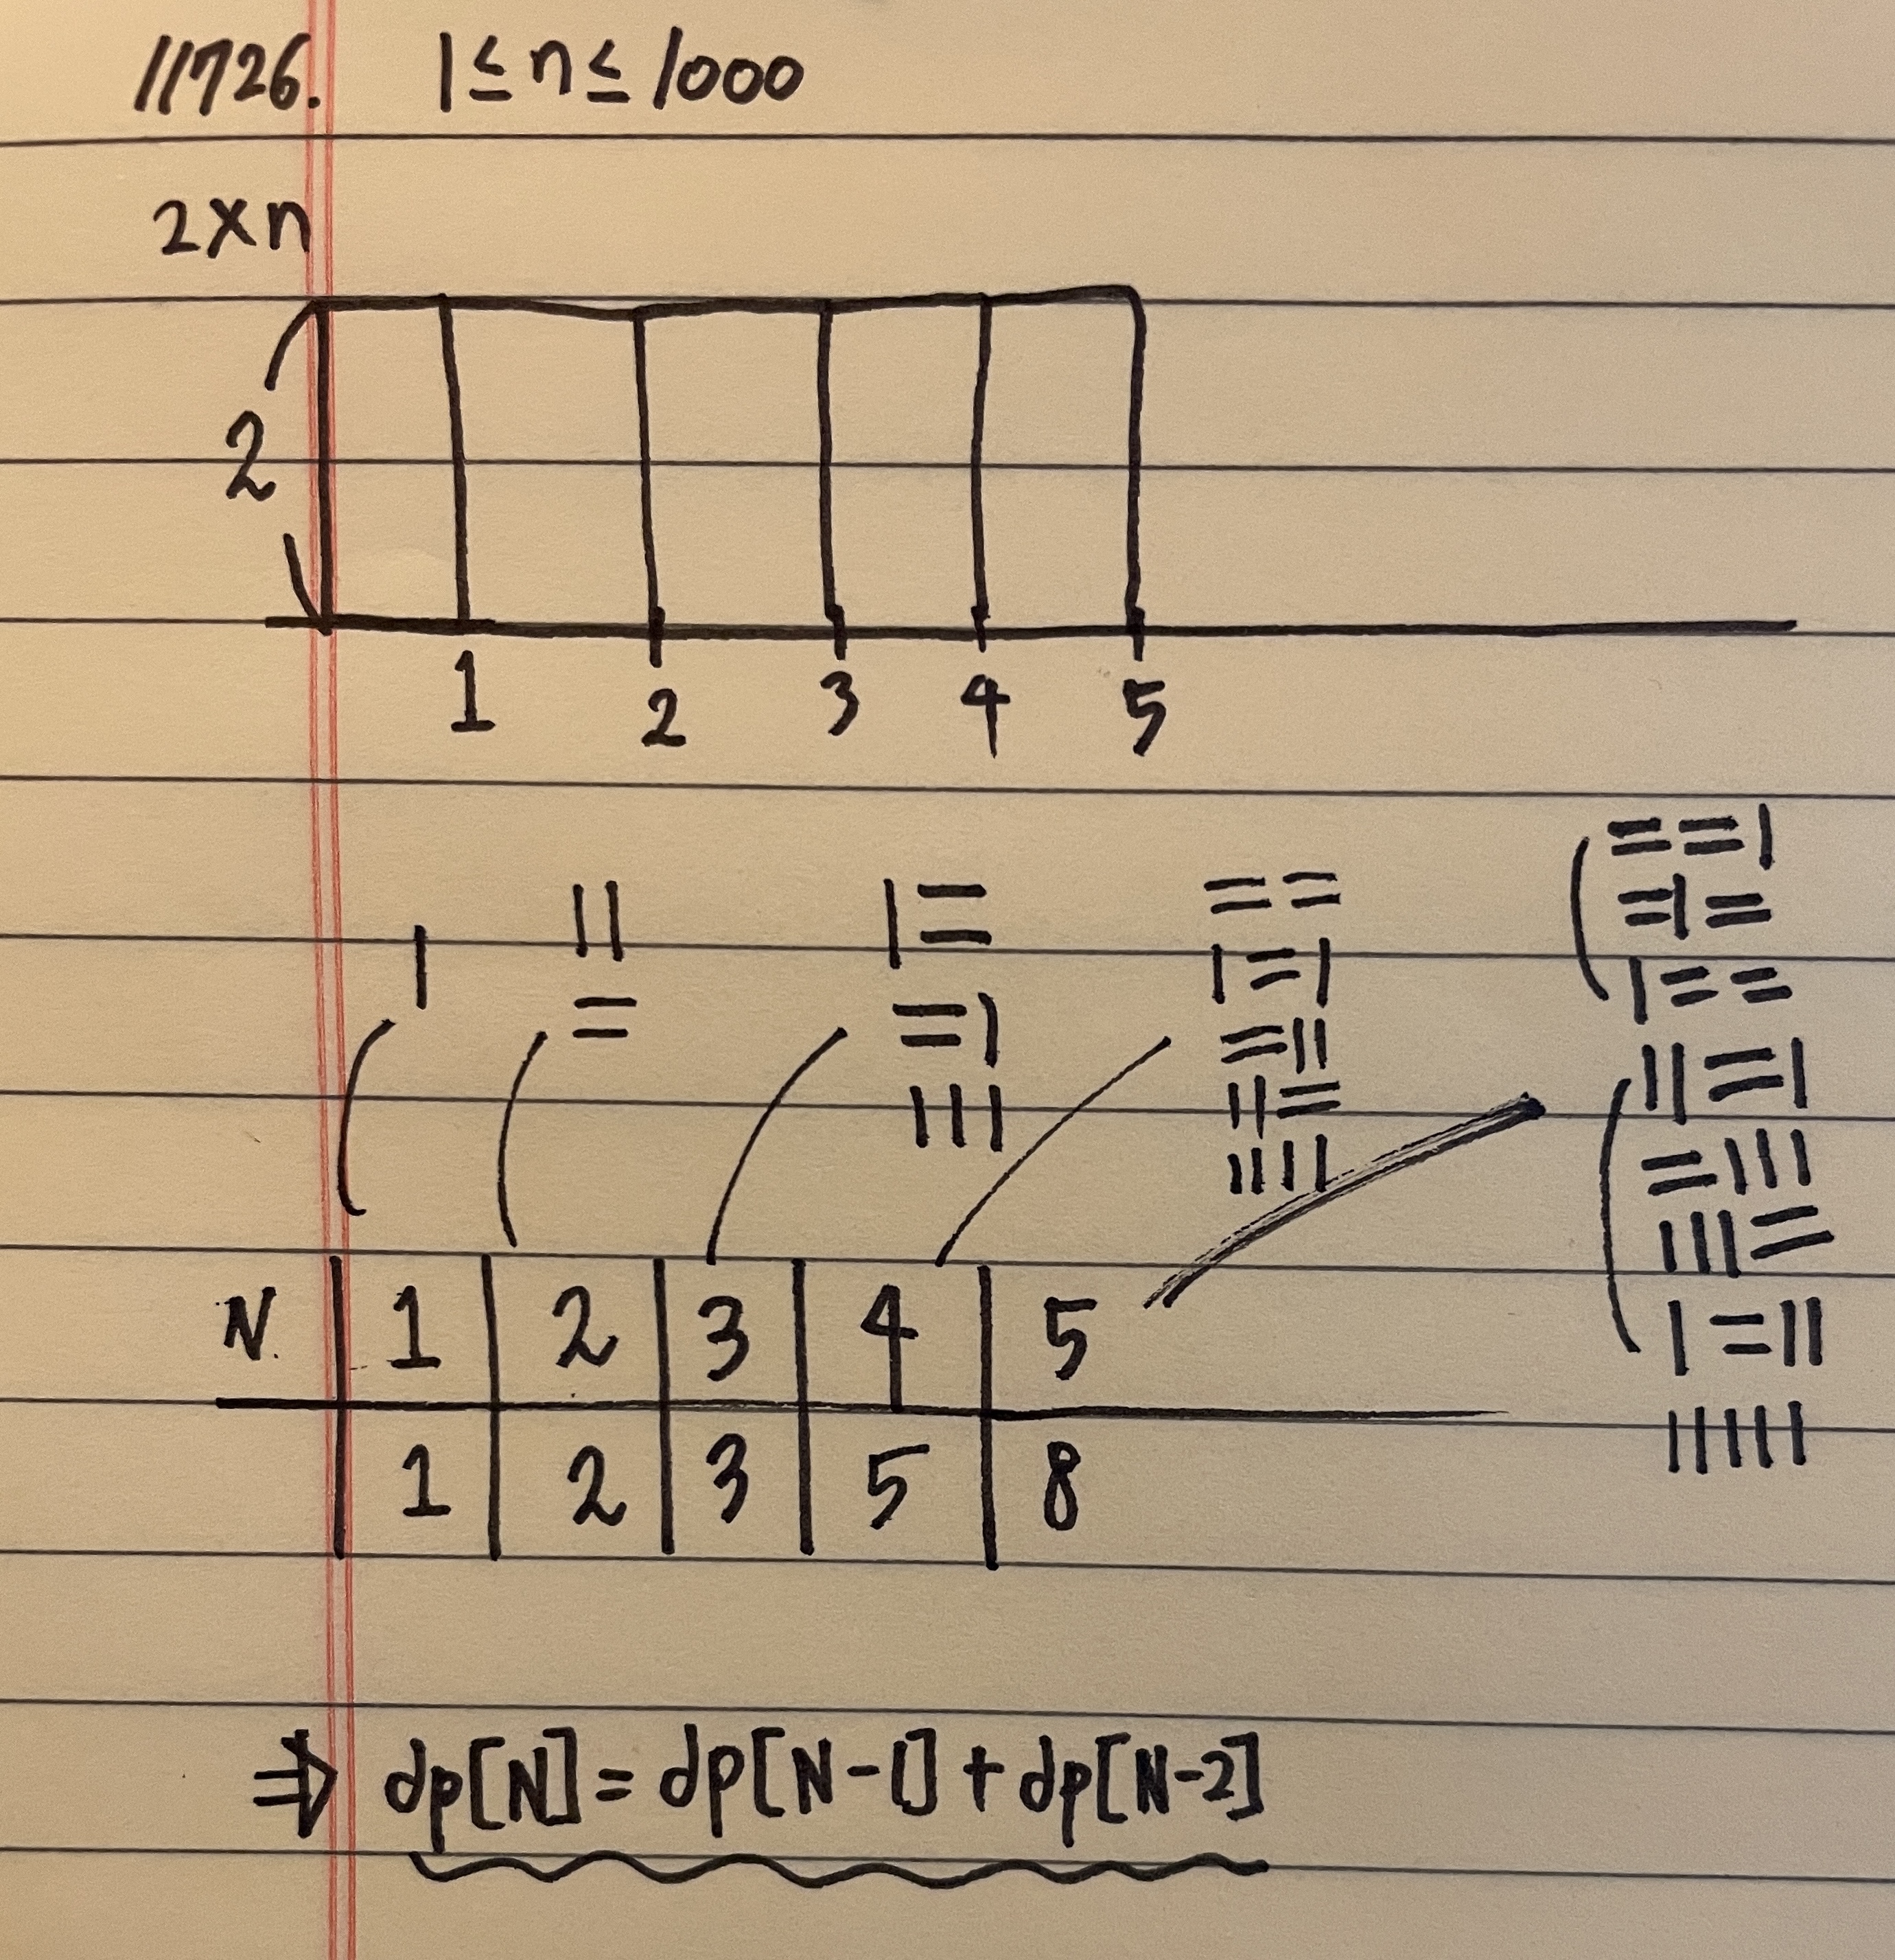 11726. 1 ≤ n ≤ 1000
2×n
2
1 2 3 4 5
| || |= == ==|
= =| |=| =|=
||| =|| |==
||= ||=|
|||| =|||
|||=
|=||
|||||
N 1 2 3 4 5
1 2 3 5 8
⇒ dp[N] = dp[N-1] + dp[N-2]